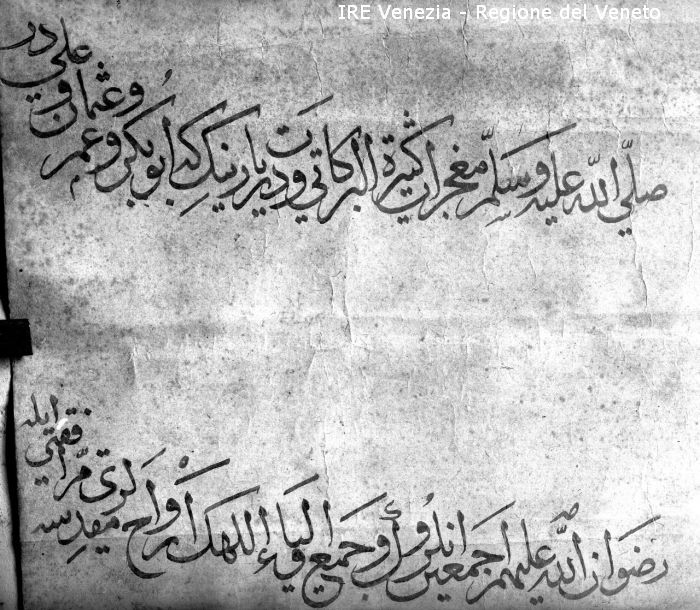 IRE Venezia - Regione del Veneto
صلّي الله عليه وسلّم معجزات كثيرة البركاتي ودرت يارينك كه ابو بكر وعمر وعثمان وعلي در
رضوان الله عليهم اجمعين وجميع اولياء اللهك ارواح مقدسه لري مرافقتي ايله